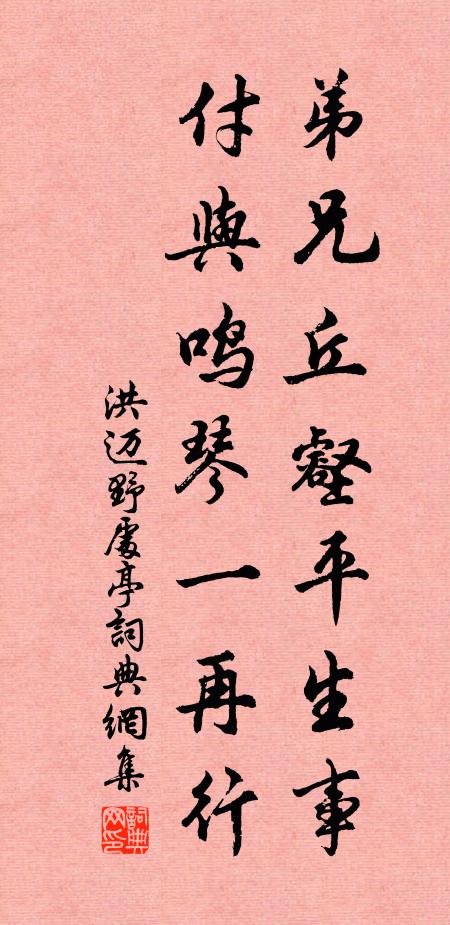 弟兄丘壑平生事
付與鸣琴一再行
洪迈野處亭詞典網集
詞典网印